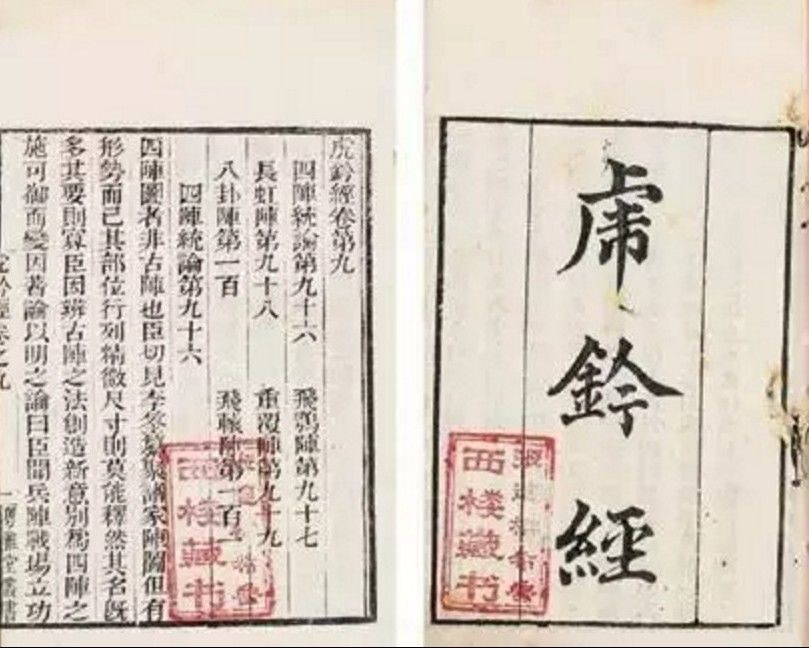 虎鈐經
西楼藏书
虎鈐經卷第九
四陣統論第九十六　飛鶚陣第九十七
長虹陣第九十八　重覆陣第九十九
八卦陣第一百　飛轅陣第一百一
四陣統論第九十六
四陣圖者非古陣也臣切見李筌纂聚諸家陣圖但有
形勢而已其部位行列精微尺寸則莫能釋然其名既
多其要則寡臣因辨古陣之法創造新意別爲四陣之
施可御而變因著論以明之論曰臣聞兵陣戰場立功
虎鈐經卷之九　一　粵雅堂叢書
西楼藏书